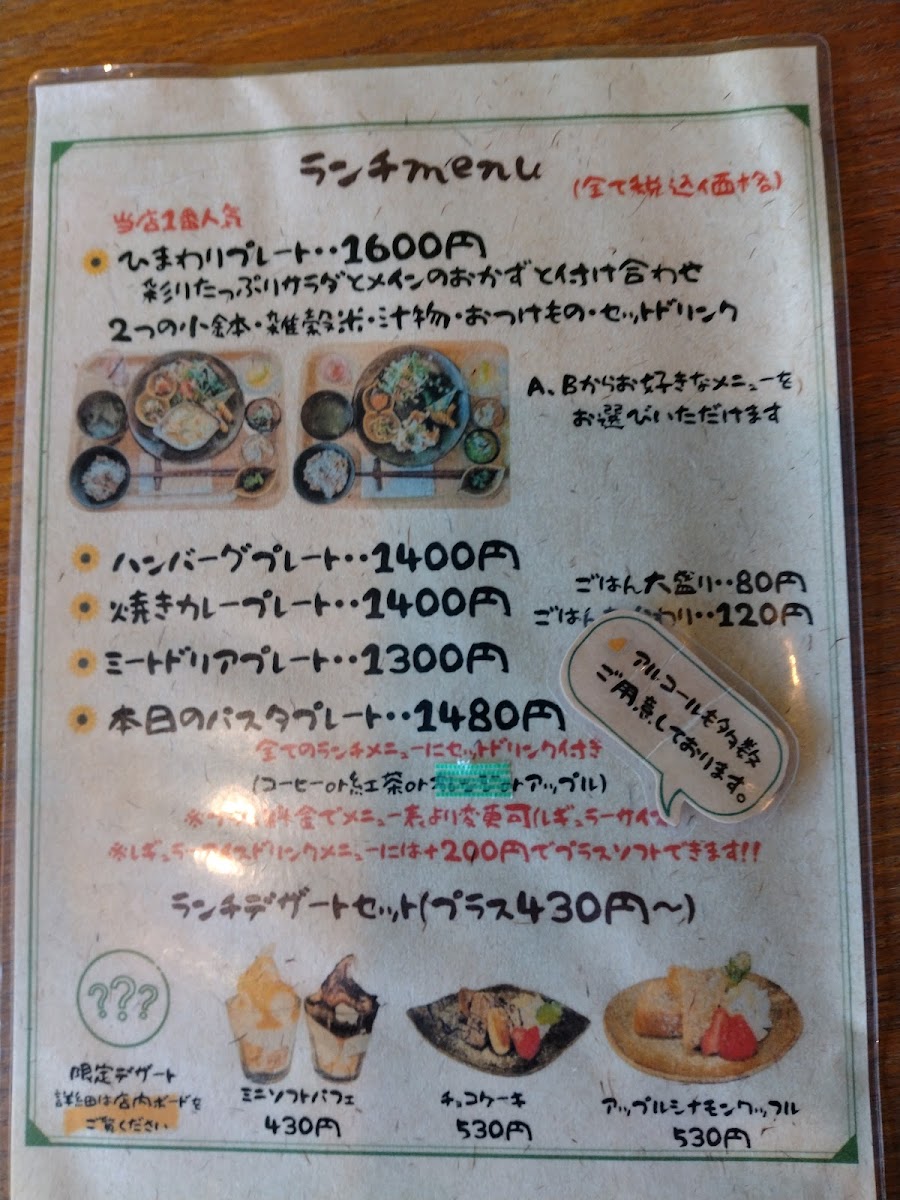 ランチmenu
(全て税込価格)
当店1番人気
ひまわりプレート‥1600円
彩りたっぷりサラダとメインのおかずと付け合わせ
2つの小鉢・雑穀米・汁物・おつけもの・セットドリンク
A、Bからお好きなメニューを
お選びいただけます
ハンバーグプレート‥1400円
焼きカレープレート‥1400円
ミートドリアプレート‥1300円
本日のパスタプレート‥1480円
ごはん大盛り‥80円
ごはん わり‥120円
アルコールも多数
ご用意しております。
全てのランチメニューにセットドリンク付き
(コーヒーor紅茶or アップル)
料金でメニュー表より変更可(レギュラーサイズ
※レギュラーアイスドリンクメニューには+200円でプラスソフトできます!!
ランチデザートセット(プラス430円〜)
???
限定デザート
詳細は店内ボードを
ご覧ください
ミニソフトパフェ
430円
チョコケーキ
530円
アップルシナモンワッフル
530円